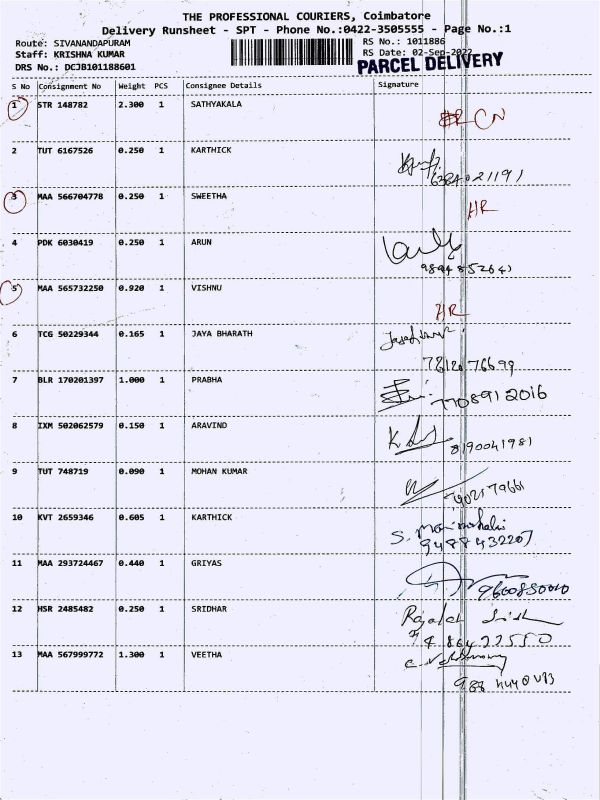 THE PROFESSIONAL COURIERS, Coimbatore
Delivery Runsheet - SPT - Phone No.:0422-3505555 - Page No.:1
Route: SIVANANDAPURAM RS No.: 1011886
Staff: KRISHNA KUMAR RS Date: 02-Sep-2022
DRS No.: DCJB101188601 PARCEL DELIVERY
S No Consignment No Weight PCS Consignee Details Signature
1 STR 148782 2.300 1 SATHYAKALA
CN
2 TUT 6167526 0.250 1 KARTHICK
6384021191
3 MAA 566704778 0.250 1 SWEETHA
HR
4 PDK 6030419 0.250 1 ARUN
5 MAA 565732250 0.920 1 VISHNU
HR
6 TCG 50229344 0.165 1 JAYA BHARATH
7812076699
7 BLR 170201397 1.000 1 PRABHA
7708912016
8 IXM 502062579 0.150 1 ARAVIND
8190041981
9 TUT 748719 0.090 1 MOHAN KUMAR
10 KVT 2659346 0.605 1 KARTHICK
9488432207
11 MAA 293724467 0.440 1 GRIYAS
12 HSR 2485482 0.250 1 SRIDHAR
13 MAA 567999772 1.300 1 VEETHA